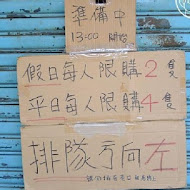 準備中
13:00 開始
假日每人限購2隻
平日每人限購4隻
排隊方向左